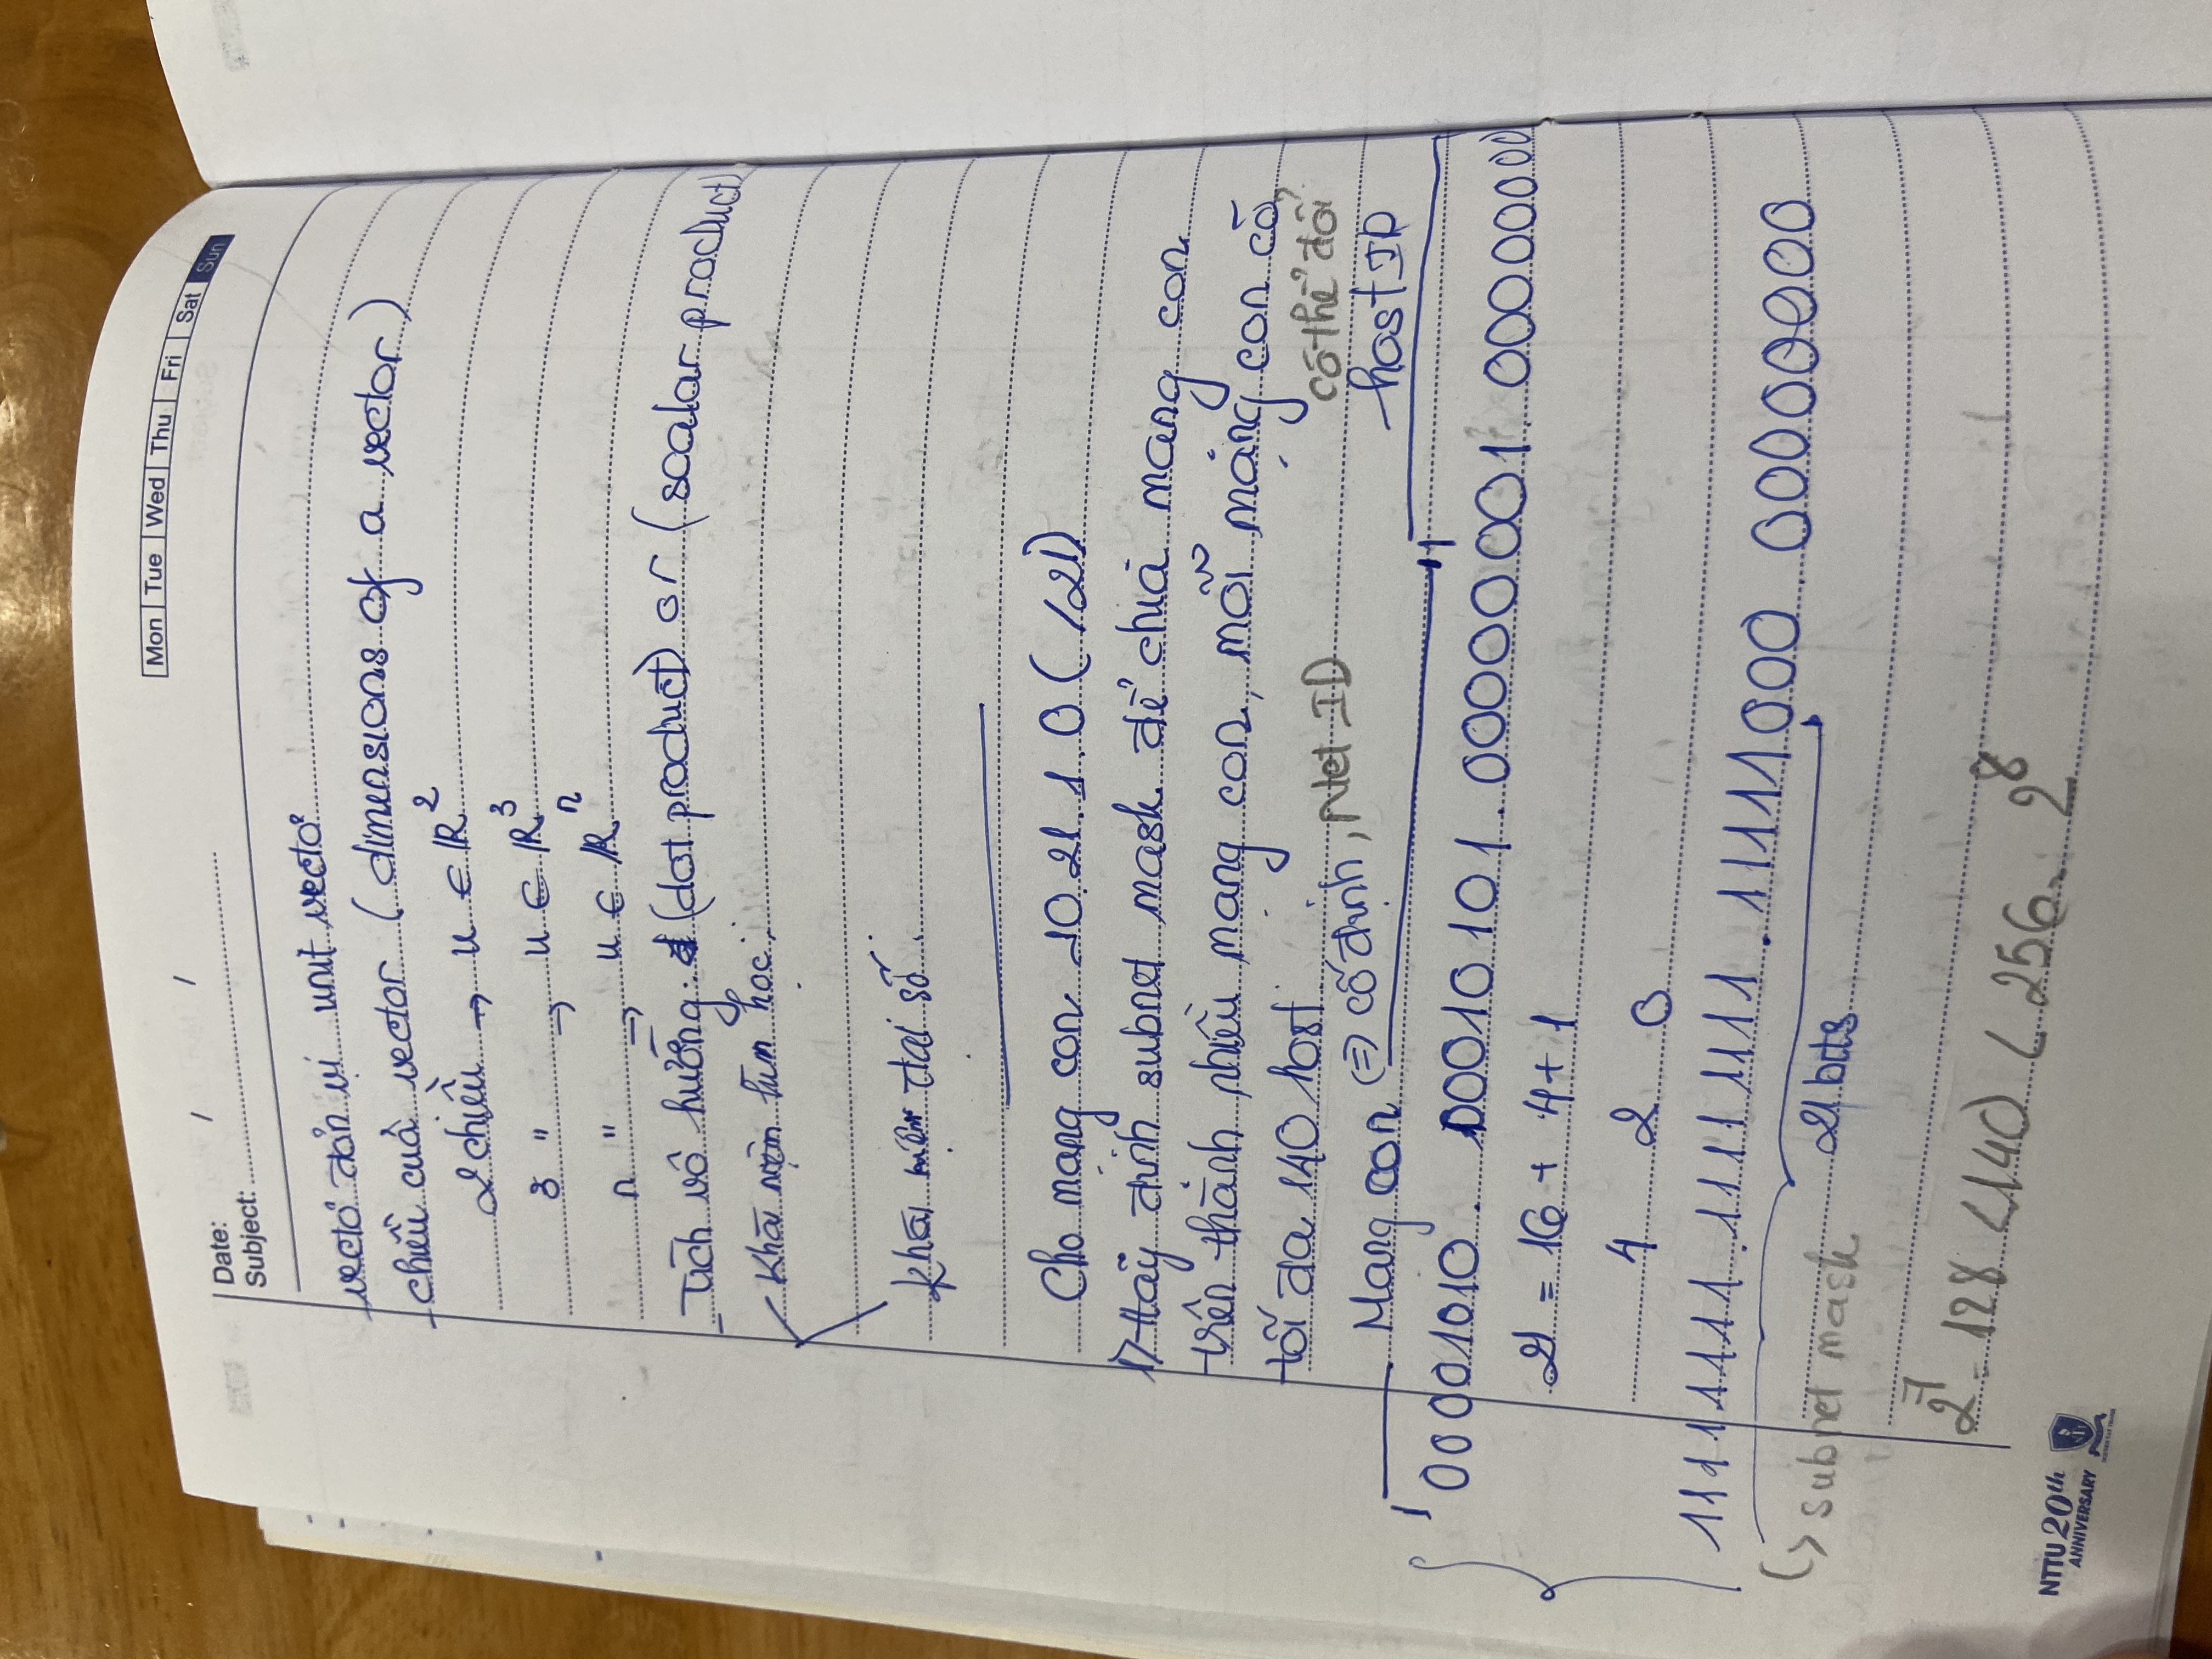 Mon Tue Wed Thu Fri Sat Sun
Date: / /
Subject:
vectơ đơn vị unit vectơ
- chiều của vector (dimensions of a vector)
2 chiều → u ∈ R²
3 " → u ∈ R³
n " → u ∈ Rⁿ
- Tích vô hướng: (dot product) or (scalar product)
Khái niệm hình học:
Khái niệm đại số:
Cho mạng con 10.21.1.0 (/21)
1) Hãy định subnet mask để chia mạng con
trên thành nhiều mạng con, mỗi mạng con có
tối đa 140 host.
có thể đổi
Mạng con ⇒ cố định, Net ID host ID
00001010. 00010101. 00000001. 00000000
21 = 16 + 4 + 1
4 2 0
11111111.11111111.11111000.00000000
↳ subnet mask 21 bits
2⁷ = 128 < 140 < 256 = 2⁸
NTTU 20th
ANNIVERSARY